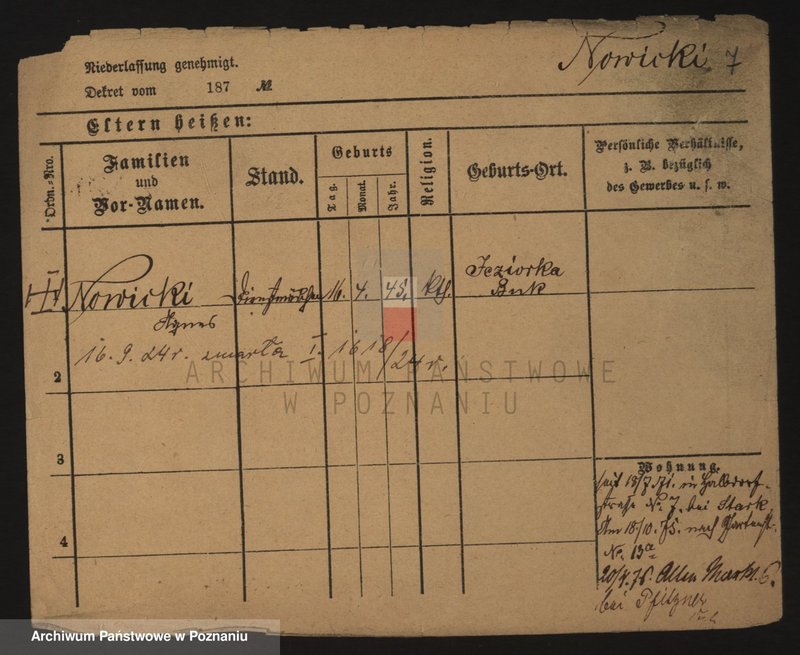 Nowicki 7
Niederlassung genehmigt.
Dekret vom 187 №
Eltern heißen:
Ordn.-Nro.
Familien
und
Vor-Namen.
Stand.
Geburts
Tag.
Monat.
Jahr.
Religion.
Geburts-Ort.
Persönliche Verhältnisse,
z. B. bezüglich
des Gewerbes u. s. w.
Nowicki Dienstmädchen 16. 4. 45. kth. Jeziorka
Buk
Agnes
16. 9. 24 r. zmarła I. 1618/24 r.
2
3
4
Wohnung.
seit 13/7 71. in Halbdorf-
straße No. 7. bei Stark
Am 18/10. 75. nach Gartenstr.
No. 13a
Alten Markt 6.
bei Pfitzner
ARCHIWUM PAŃSTWOWE
W POZNANIU
Archiwum Państwowe w Poznaniu